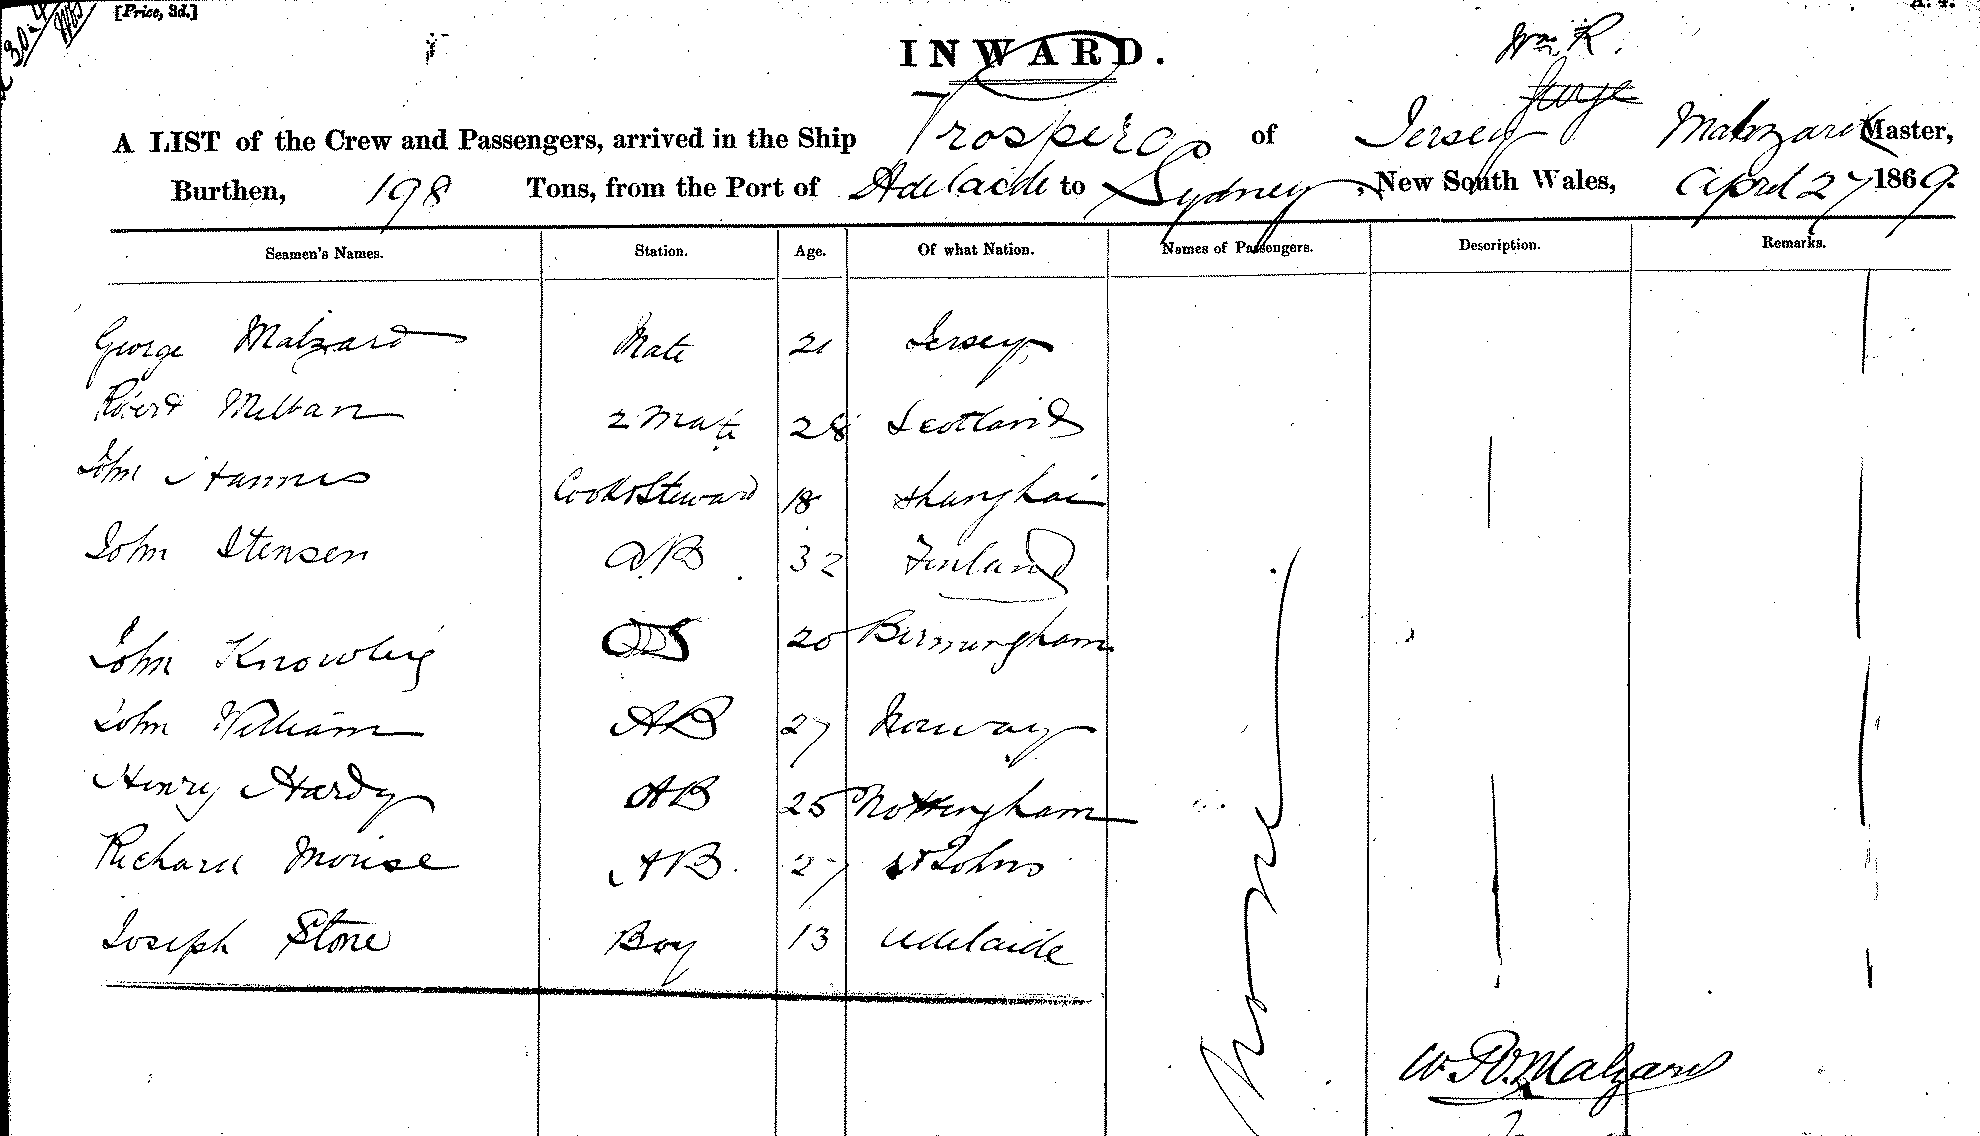 [Price, 3d.]
INWARD.
Wm R.
A LIST of the Crew and Passengers, arrived in the Ship Prospero of Jersey Malzard Master,
Burthen, 198 Tons, from the Port of Adelaide to Sydney, New South Wales, April 27 1869.
Seamen's Names. Station. Age. Of what Nation. Names of Passengers. Description. Remarks.
George Malzard Mate 21 Jersey
Robert 2 Mate 28 Scotland
John Cook & Steward 18 Shanghai
John Stensen A.B 32 Finland
John Knowling OS 20 Birmingham
John William AB 27 Norway
Henry Hardy AB 25 Nottingham
Richard Morise AB. 27 St Johns
Joseph Stone Boy 13 Adelaide
None
W. R. Malzard